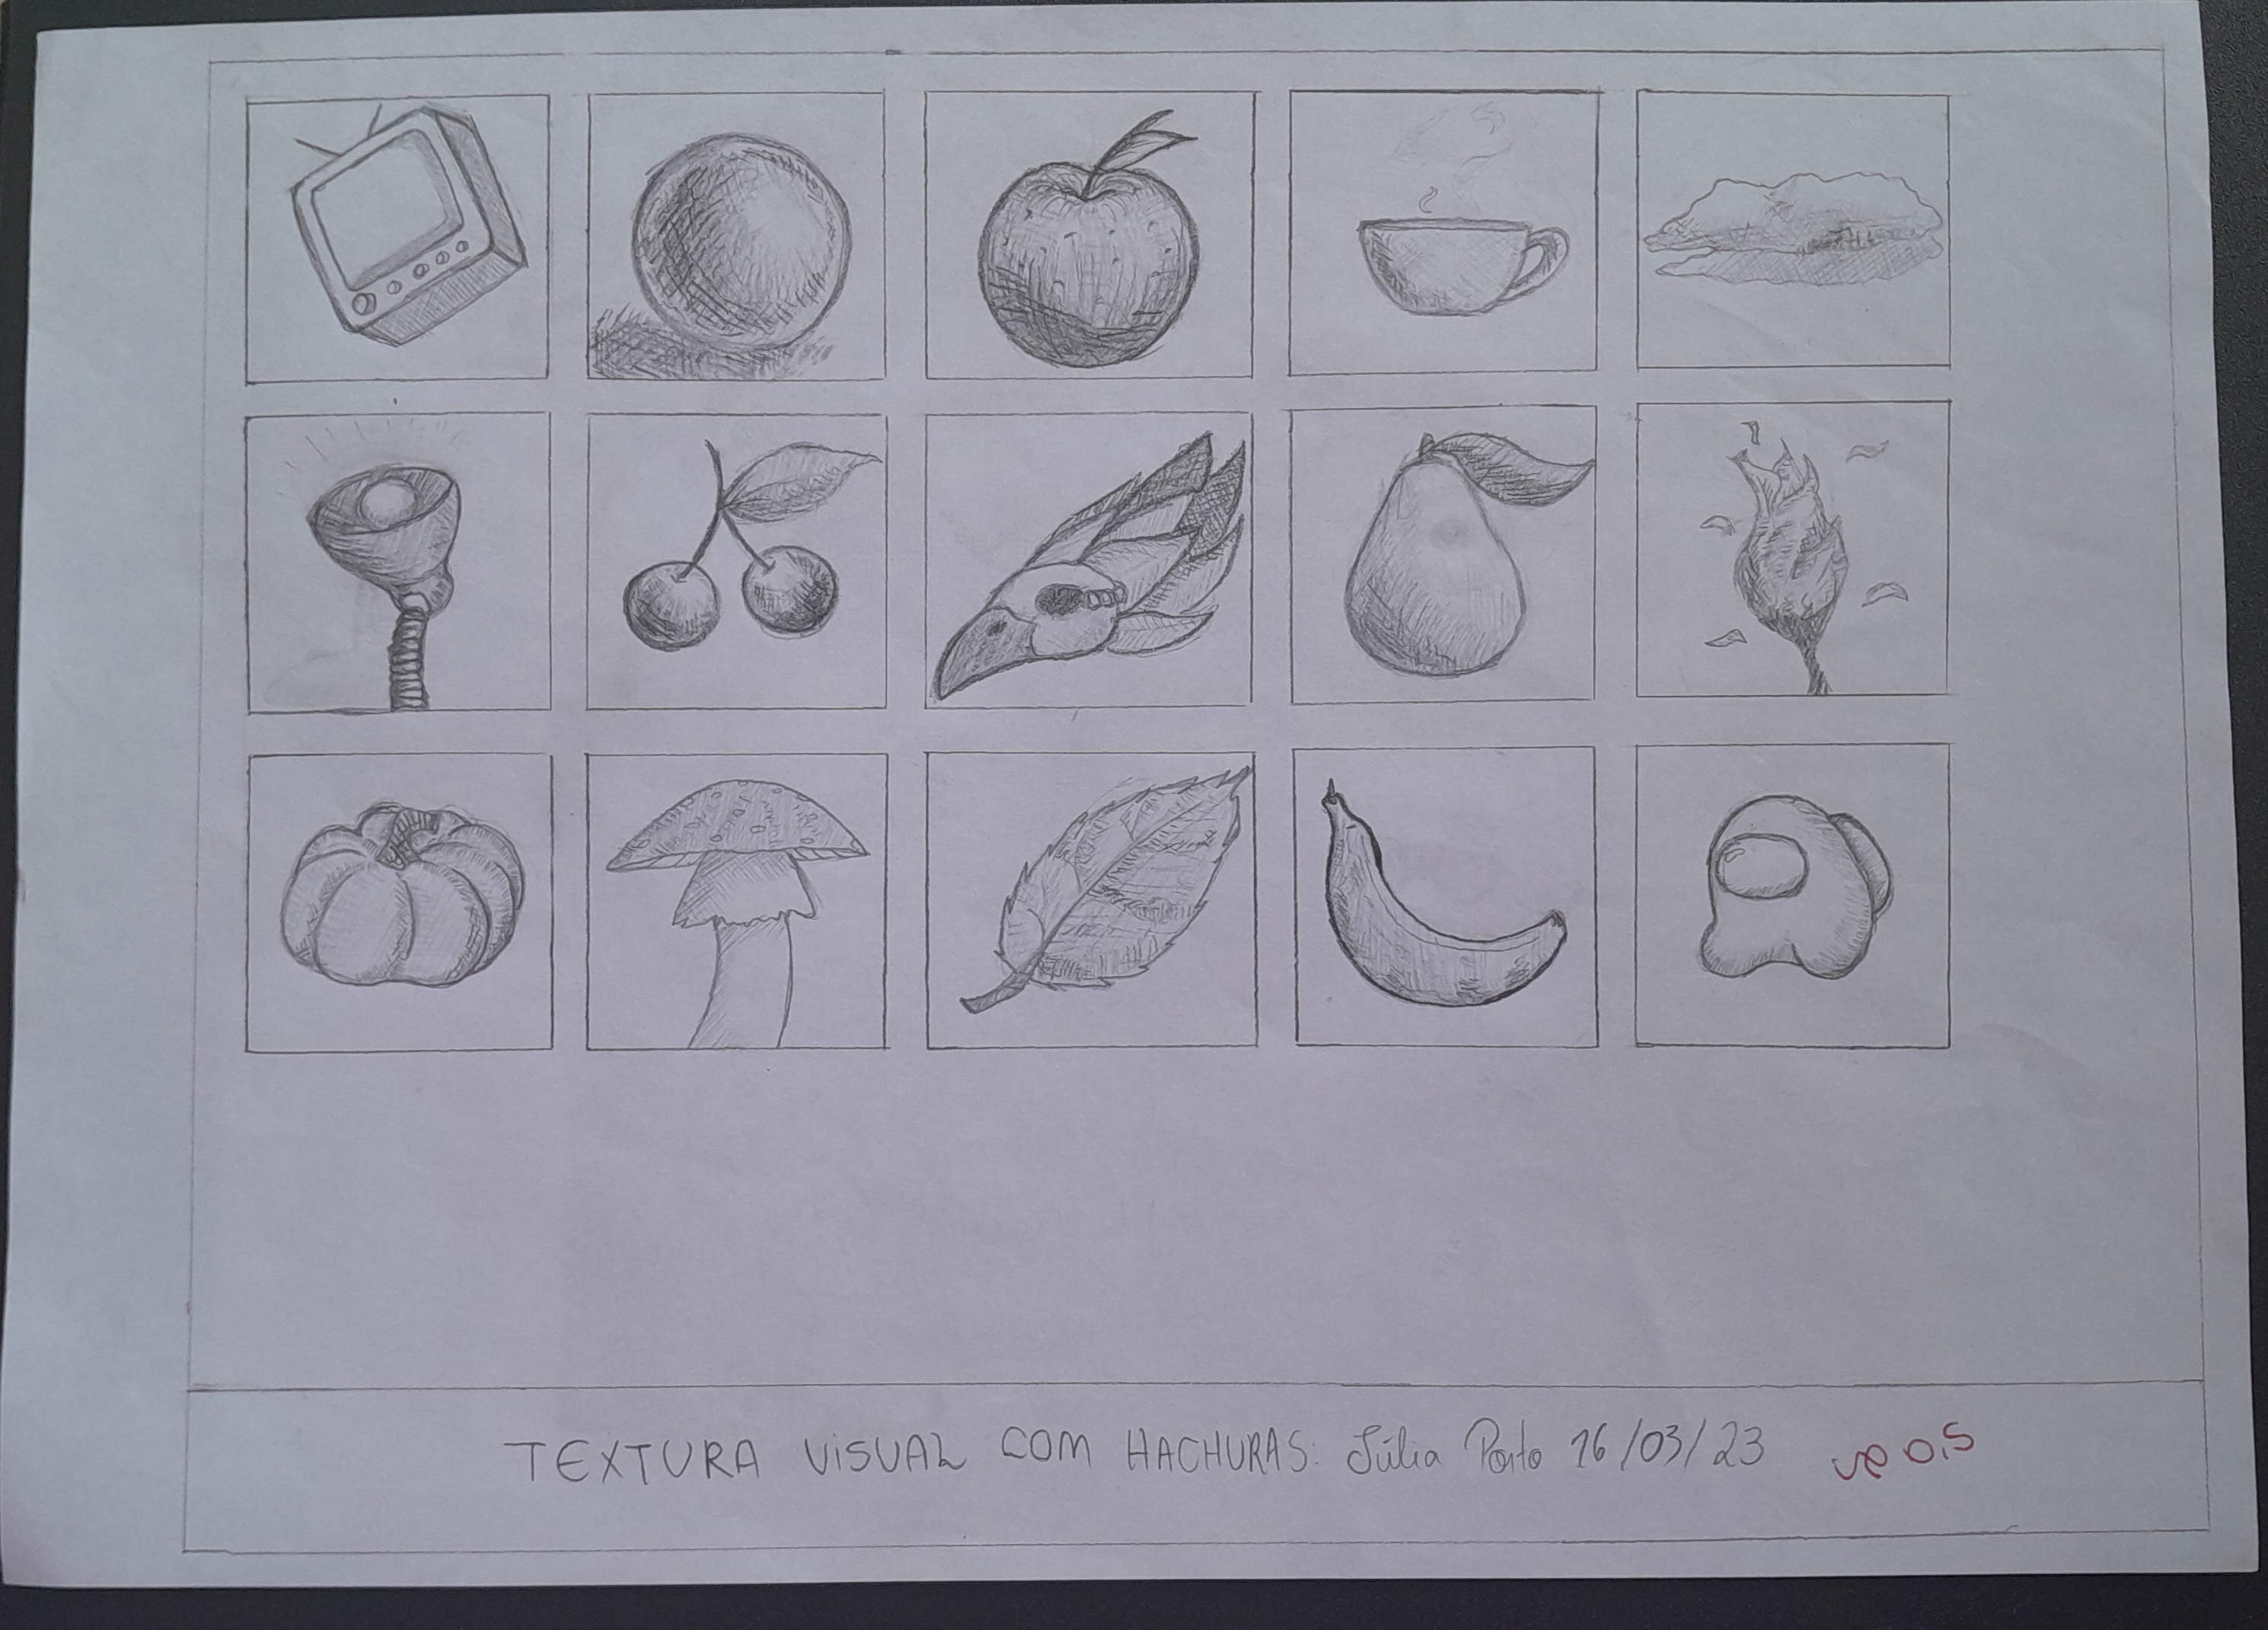 TEXTURA VISUAL COM HACHURAS: Júlia Porto 16/03/23 0,5